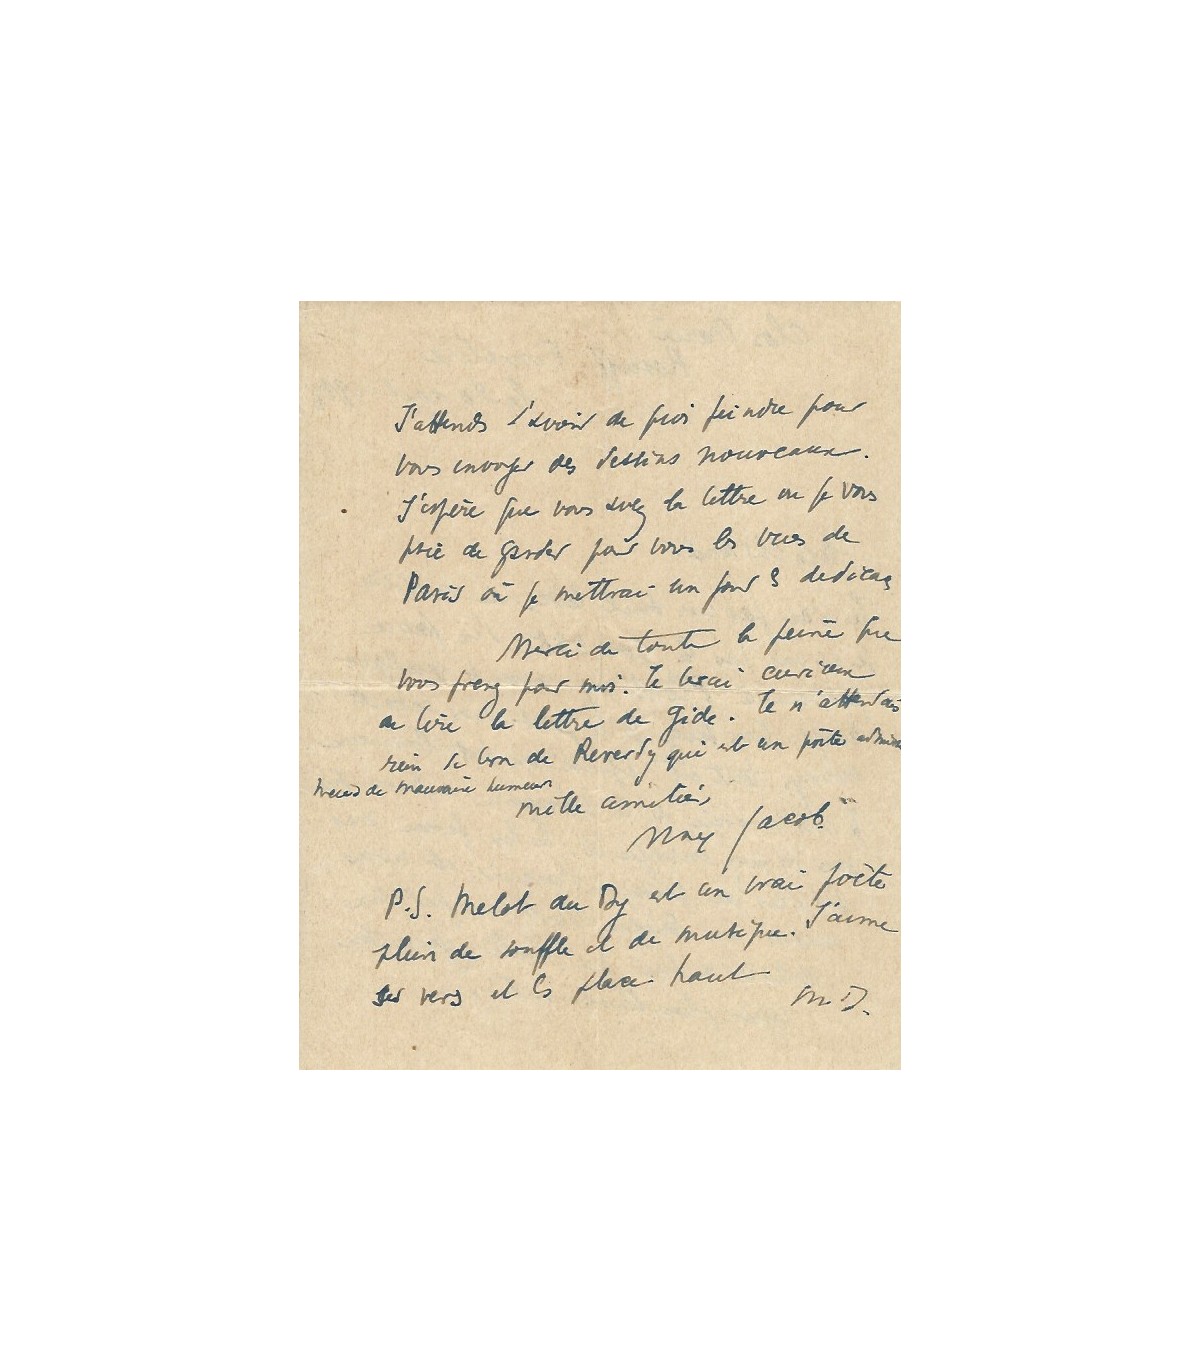 J'attends d'avoir de quoi peindre pour
vous envoyer des dessins nouveaux.
J'espère que vous avez la lettre où je vous
prie de garder pour vous les vues de
Paris où je mettrai un jour 3 dedicaces
Merci de toute la peine que
vous prenez pour moi. Je serai curieux
de lire la lettre de Gide. Je n'attendais
rien de bon de Reverdy qui est un poète
de mauvaise humeur
mille amitiés
Max Jacob
P.S. Melot du Dy est un vrai poète
plein de souffle et de musique. J'aime
ses vers et les place haut
M. J.